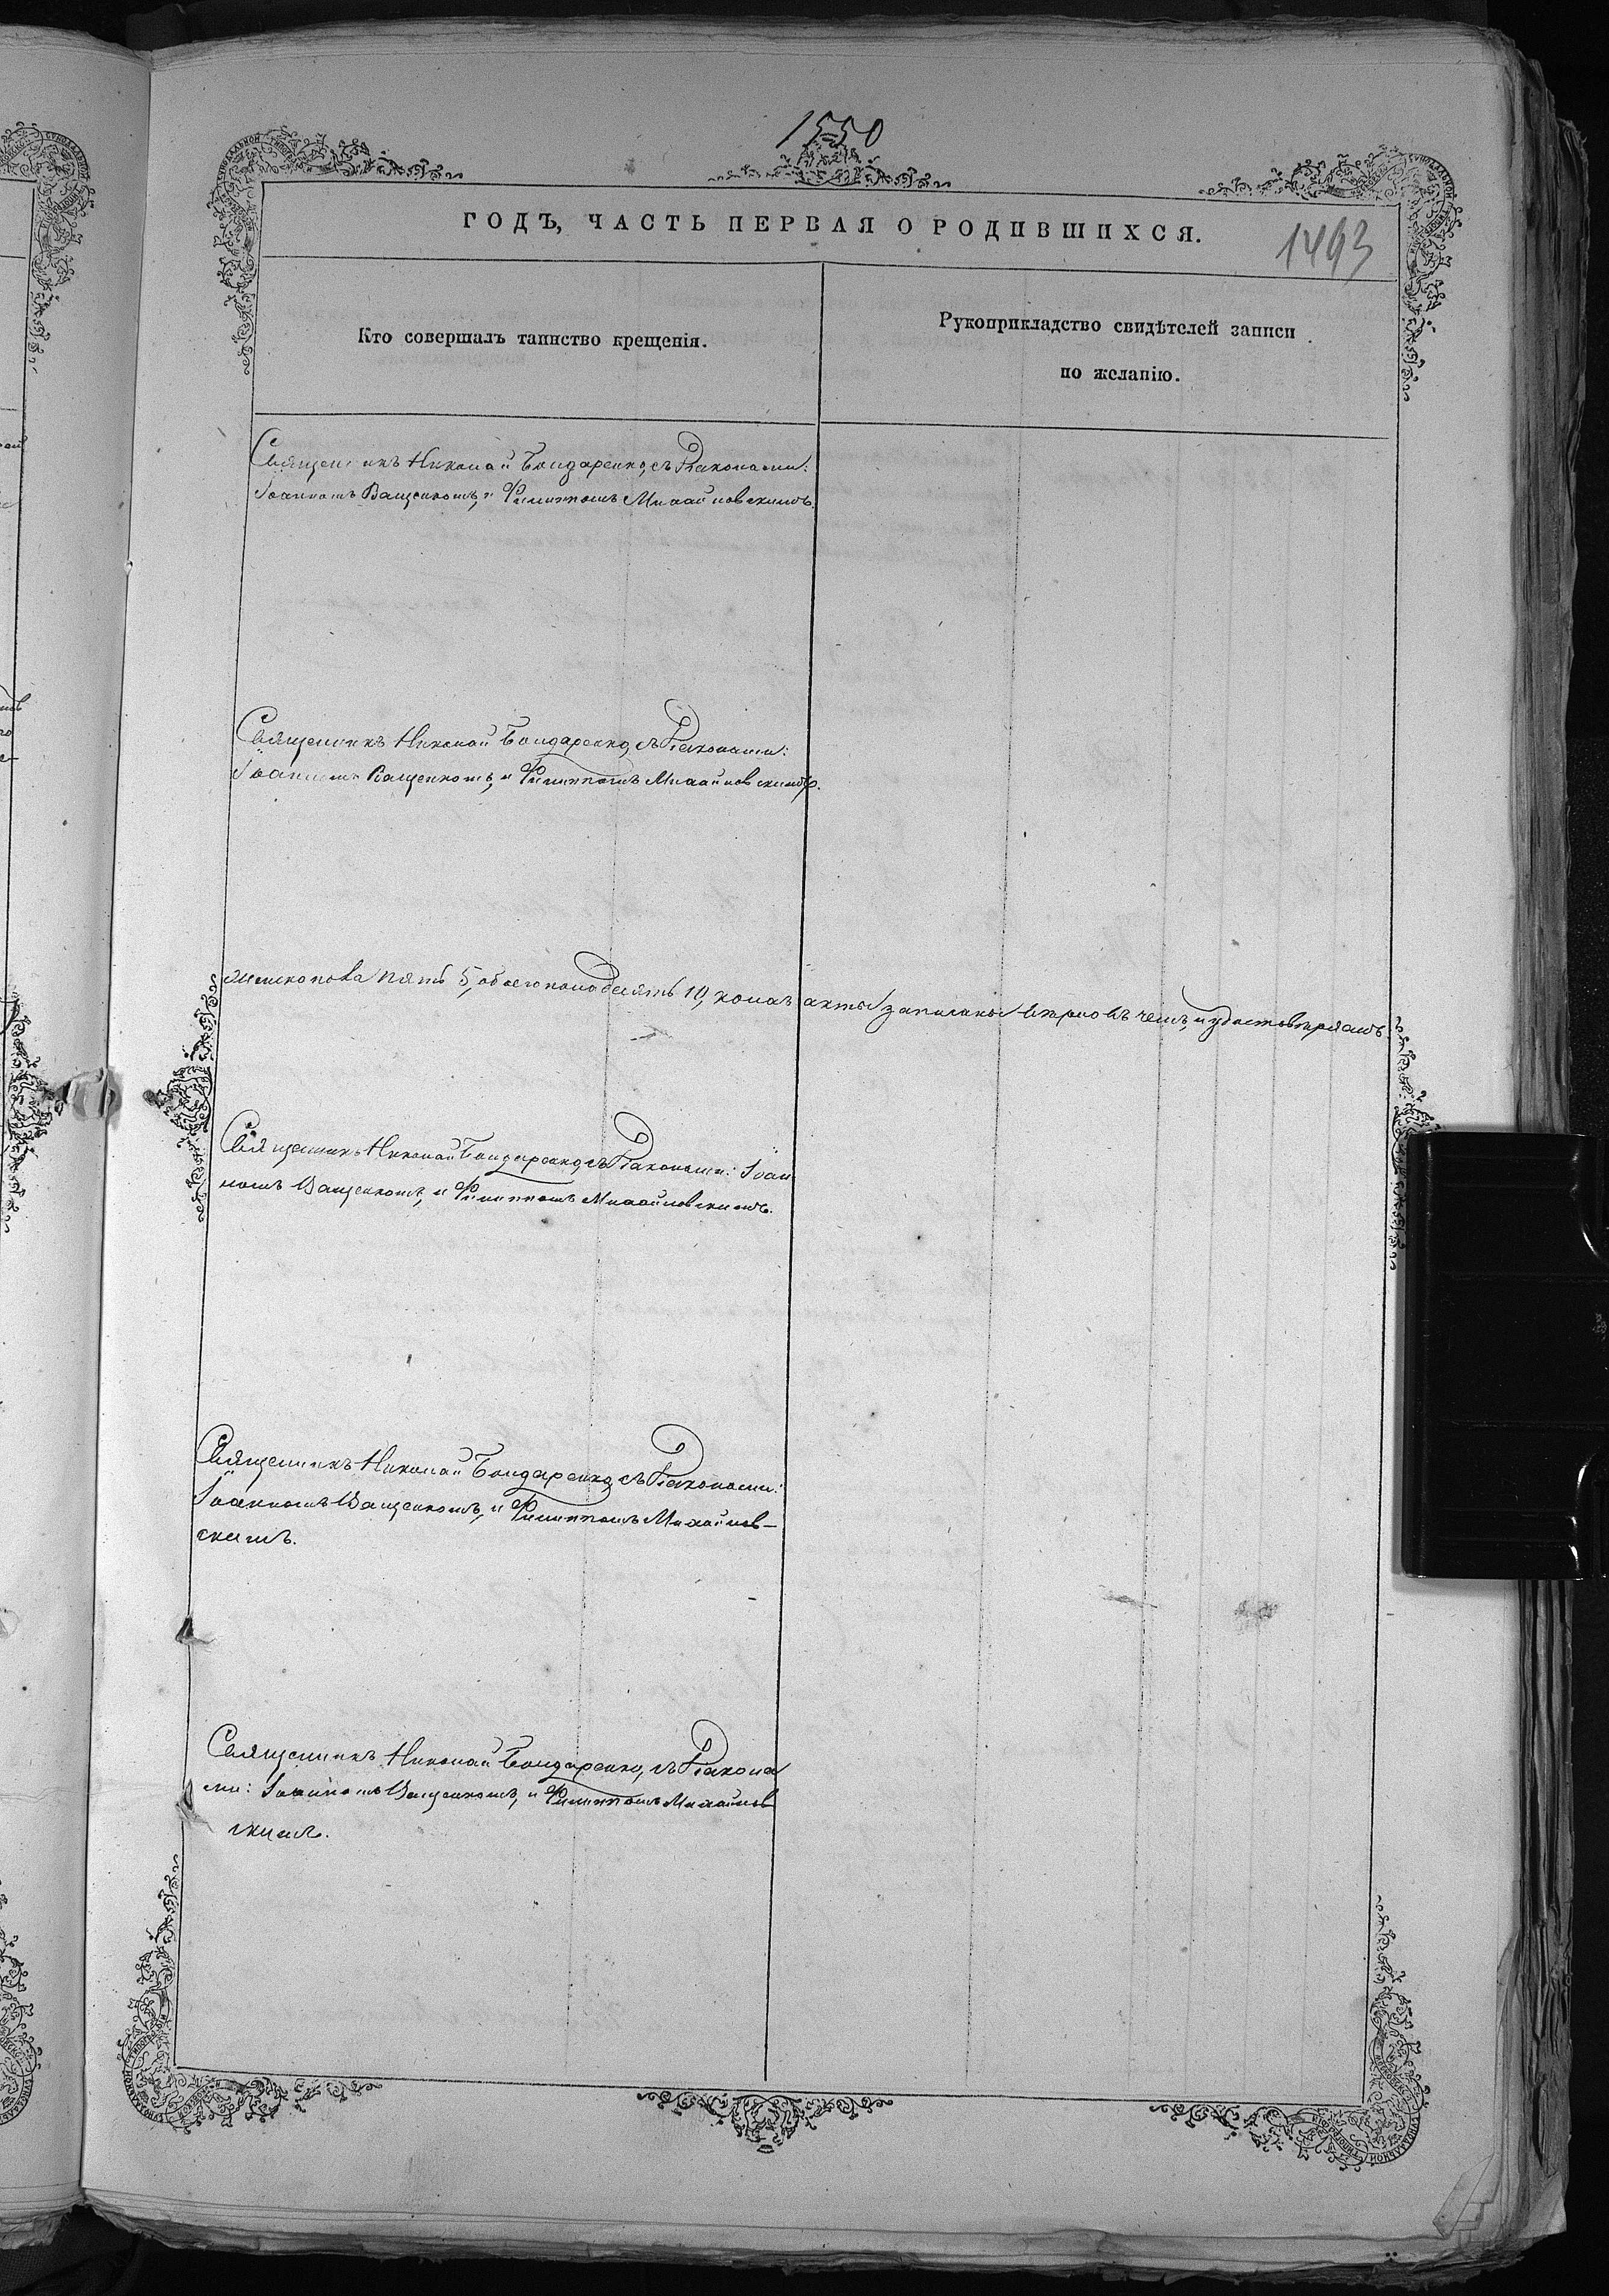 1550
ГОДЪ, ЧАСТЬ ПЕРВАЯ О РОДИВШИХСЯ.
1493
Кто совершалъ таинство крещенія.
Рукоприкладство свидѣтелей записи
по желанію.
Священникъ Николай Бондаренко, съ Дьяконами:
Іоанномъ Ващенкомъ, и Филиппомъ Михайловскимъ.
Священникъ Николай Бондаренко, съ Дьяконами:
Іоанномъ Ващенкомъ, и Филиппомъ Михайловскимъ.
женскопола пять 5, обоегопола десять 10, коихъ акты записаны вѣрно въ чемъ, и удостовѣряемъ
Священникъ Николай Бондаренко, съ Дьяконами: Іоан
номъ Ващенкомъ, и Филиппомъ Михайловскимъ.
Священникъ Николай Бондаренко, съ Дьяконами:
Іоанномъ Ващенкомъ, и Филиппомъ Михайлов-
скимъ.
Священникъ Николай Бондаренко, съ Дьякона
ми: Іоанномъ Ващенкомъ, и Филиппомъ Михайлов
скимъ.